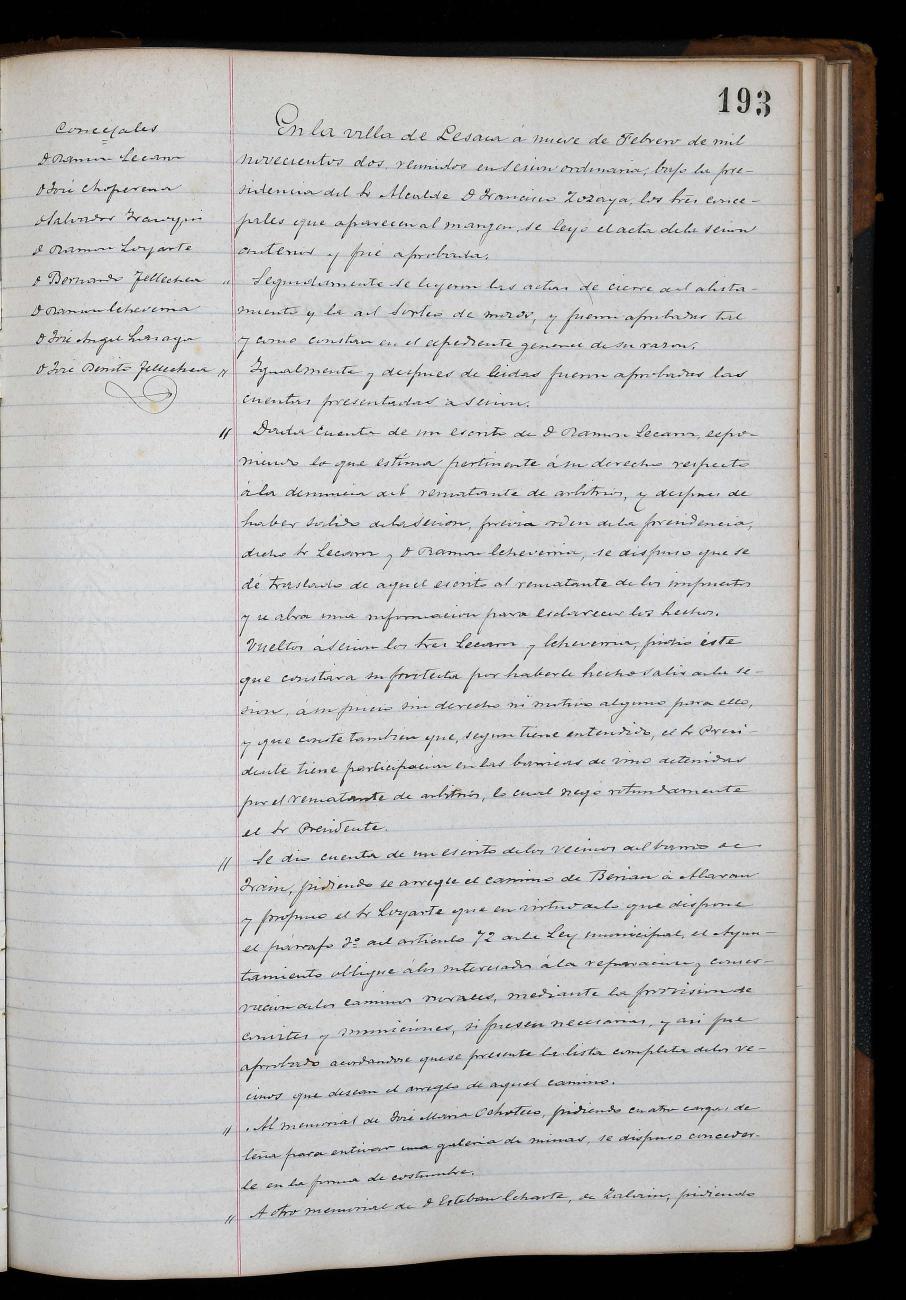 193
Concejales
D Ramon Lecaroz
D José Choperena
D Salvador Irazoqui
D Ramon Loyarte
D Bernardo Tellechea
D Ramon Echeverria
D José Angel
D José Benito Tellechea
En la villa de Lesaca á nueve de Febrero de mil
novecientos dos, reunidos en sesion ordinaria, bajo la pre-
sidencia del Sr Alcalde D Francisco Zozaya, los Sres conce-
jales que aparecen al margen, se leyó el acta de la sesion
anterior y fué aprobada.
" Seguidamente se leyeron las actas de cierre del alista-
miento y la del Sorteo de mozos, y fueron aprobadas tal
y como constan en el expediente general de su razon.
" Igualmente y despues de leidas fueron aprobadas las
cuentas presentadas á sesion.
" Dada cuenta de un escrito de D Ramon Lecaroz, espo-
niendo lo que estima pertinente á su derecho respecto
á la denuncia del rematante de arbitrios, y despues de
haber salido de la sesion, previa orden de la presidencia,
dicho Sr Lecaroz y D Ramon Echeverria, se dispuso que se
dé traslado de aquel escrito al rematante de los impuestos
y se abra una informacion para esclarecer los hechos.
Vueltos á sesion los Sres Lecaroz y Echeverria, pidió éste
que constara su protesta por haberle hecho salir de la se-
sion, á su juicio sin derecho ni motivo alguno para ello,
y que conste tambien que, segun tiene entendido, el Sr Presi-
dente tiene participacion en las barricas de vino detenidas
por el rematante de arbitrios, lo cual negó rotundamente
el Sr Presidente.
" Se dió cuenta de un escrito de los vecinos del barrio de
Frain, pidiendo se arregle el camino de Berian á
y propuso el Sr Loyarte que en virtud de lo que dispone
el párrafo 3º del artículo 72 de la Ley municipal, el Ayun-
tamiento obligue á los interesados á la reparacion y conser-
vacion de los caminos rurales, mediante la provision de
convites y municiones, si fuesen necesarias, y asi fué
aprobado acordandose que se presente la lista completa de los ve-
cinos que desean el arreglo de aquel camino.
" Al memorial de José Maria Ochoteco, pidiendo cuatro cargas de
leña para entivar una galeria de minas, se dispuso conceder-
le en la forma de costumbre.
" A otro memorial de D Esteban Echarte, de Zalain, pidiendo